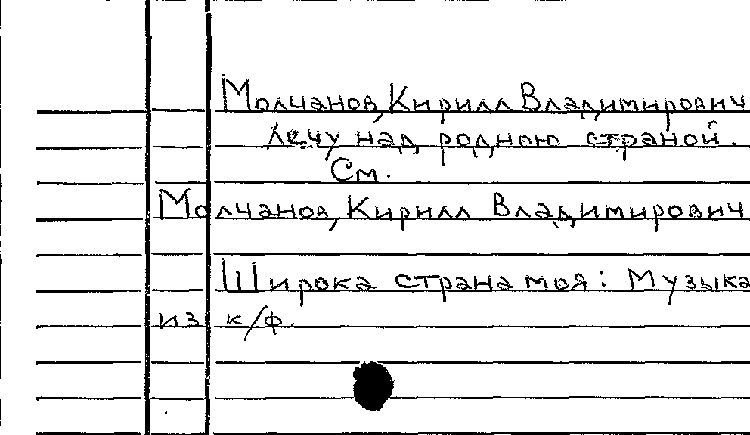 Молчанов, Кирилл Владимирович
Лечу над родною страной.
См.
Молчанов, Кирилл Владимирович
Широка страна моя: Музыка
из к/ф.